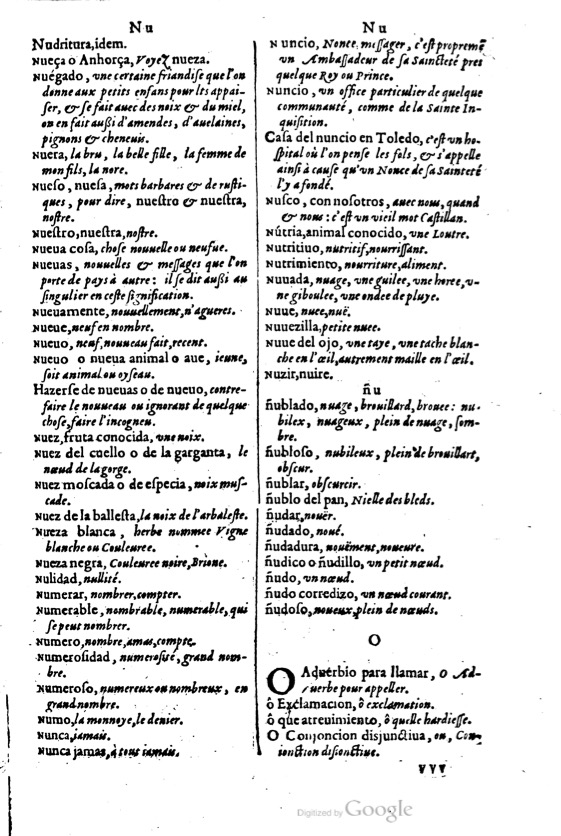 Nu
Nudritura, idem.
Nueça o Anhorça, Voyez nueza.
Nuégado, vne certaine friandise que l'on
donne aux petits enfans pour les appai-
ser, & se fait auec des noix & du miel,
on en fait außi d'amendes, d'auelaines,
pignons & cheneuis.
Nuera, la bru, la belle fille, la femme de
mon fils, la nore.
Nueso, nuesa, mots barbares & de rusti-
ques, pour dire, nuestro & nuestra,
nostre.
Nuestro, nuestra, nostre.
Nueua cosa, chose nouuelle ou neufue.
Nueuas, nouuelles & messages que l'on
porte de pays à autre: il se dit außi au
singulier en ceste signification.
Nueuamente, nouuellement, n'agueres.
Nueue, neuf en nombre.
Nueuo, neuf, nouueau fait, recent.
Nueuo o nueua animal o aue, ieune,
soit animal ou oyseau.
Hazerse de nueuas o de nueuo, contre-
faire le nouueau ou ignorant de quelque
chose, faire l'incogneu.
Nuez, fruta conocida, vne noix.
Nuez del cuello o de la garganta, le
nœud de la gorge.
Nuez moscada o de especia, noix mus-
cade.
Nuez de la ballesta, la noix de l'arbaleste.
Nueza blanca, herbe nommee Vigne
blanche ou Couleuree.
Nueza negra, Couleuree noire, Brione.
Nulidad, nullité.
Numerar, nombrer, compter.
Numerable, nombrable, numerable, qui
se peut nombrer.
Numero, nombre, amas, compte.
Numerosidad, numerosité, grand nom-
bre.
Numeroso, numereux ou nombreux, en
grand nombre.
Numo, la monnoye, le denier.
Nunca, iamais.
Nunca jamas, à tout iamais.
Nu
Nuncio, Nonce, messager, c'est propremẽt
vn Ambassadeur de sa Saincteté pres
quelque Roy ou Prince.
Nuncio, vn office particulier de quelque
communauté, comme de la Sainte In-
quisition.
Casa del nuncio en Toledo, c'est vn ho-
spital où l'on pense les fols, & s'appelle
ainsi à cause qu'vn Nonce de sa Saincteté
l'y a fondé.
Nusco, con nosotros, auec nous, quand
& nous: c'est vn vieil mot Castillan.
Nútria, animal conocido, vne Loutre.
Nutritiuo, nutritif, nourrissant.
Nutrimiento, nourriture, aliment.
Nuuada, nuage, vne guilee, vne horee, v-
ne giboulee, vne ondee de pluye.
Nuue, nuee, nuë.
Nuuezilla, petite nuee.
Nuue del ojo, vne taye, vne tache blan-
che en l'œil, autrement maille en l'œil.
Nuzir, nuire.
ñu
ñublado, nuage, brouillard, brouee: nu-
bilex, nuageux, plein de nuage, som-
bre.
ñubloso, nubileux, plein de brouillart,
obscur.
ñublar, obscurcir.
ñublo del pan, Nielle des bleds.
ñudar, nouër.
ñudado, noué.
ñudadura, nouëment, noueure.
ñudico o ñudillo, vn petit nœud.
ñudo, vn nœud.
ñudo corredizo, vn nœud courant.
ñudoso, noueux, plein de nœuds.
O
O Aduerbio para llamar, o Ad-
uerbe pour appeller.
ô Exclamacion, ô exclamation.
ô que atreuimiento, ô quelle hardiesse.
O Conjoncion disjunctiua, ou, Con-
ionction disionctiue.
VVV
Digitized by Google